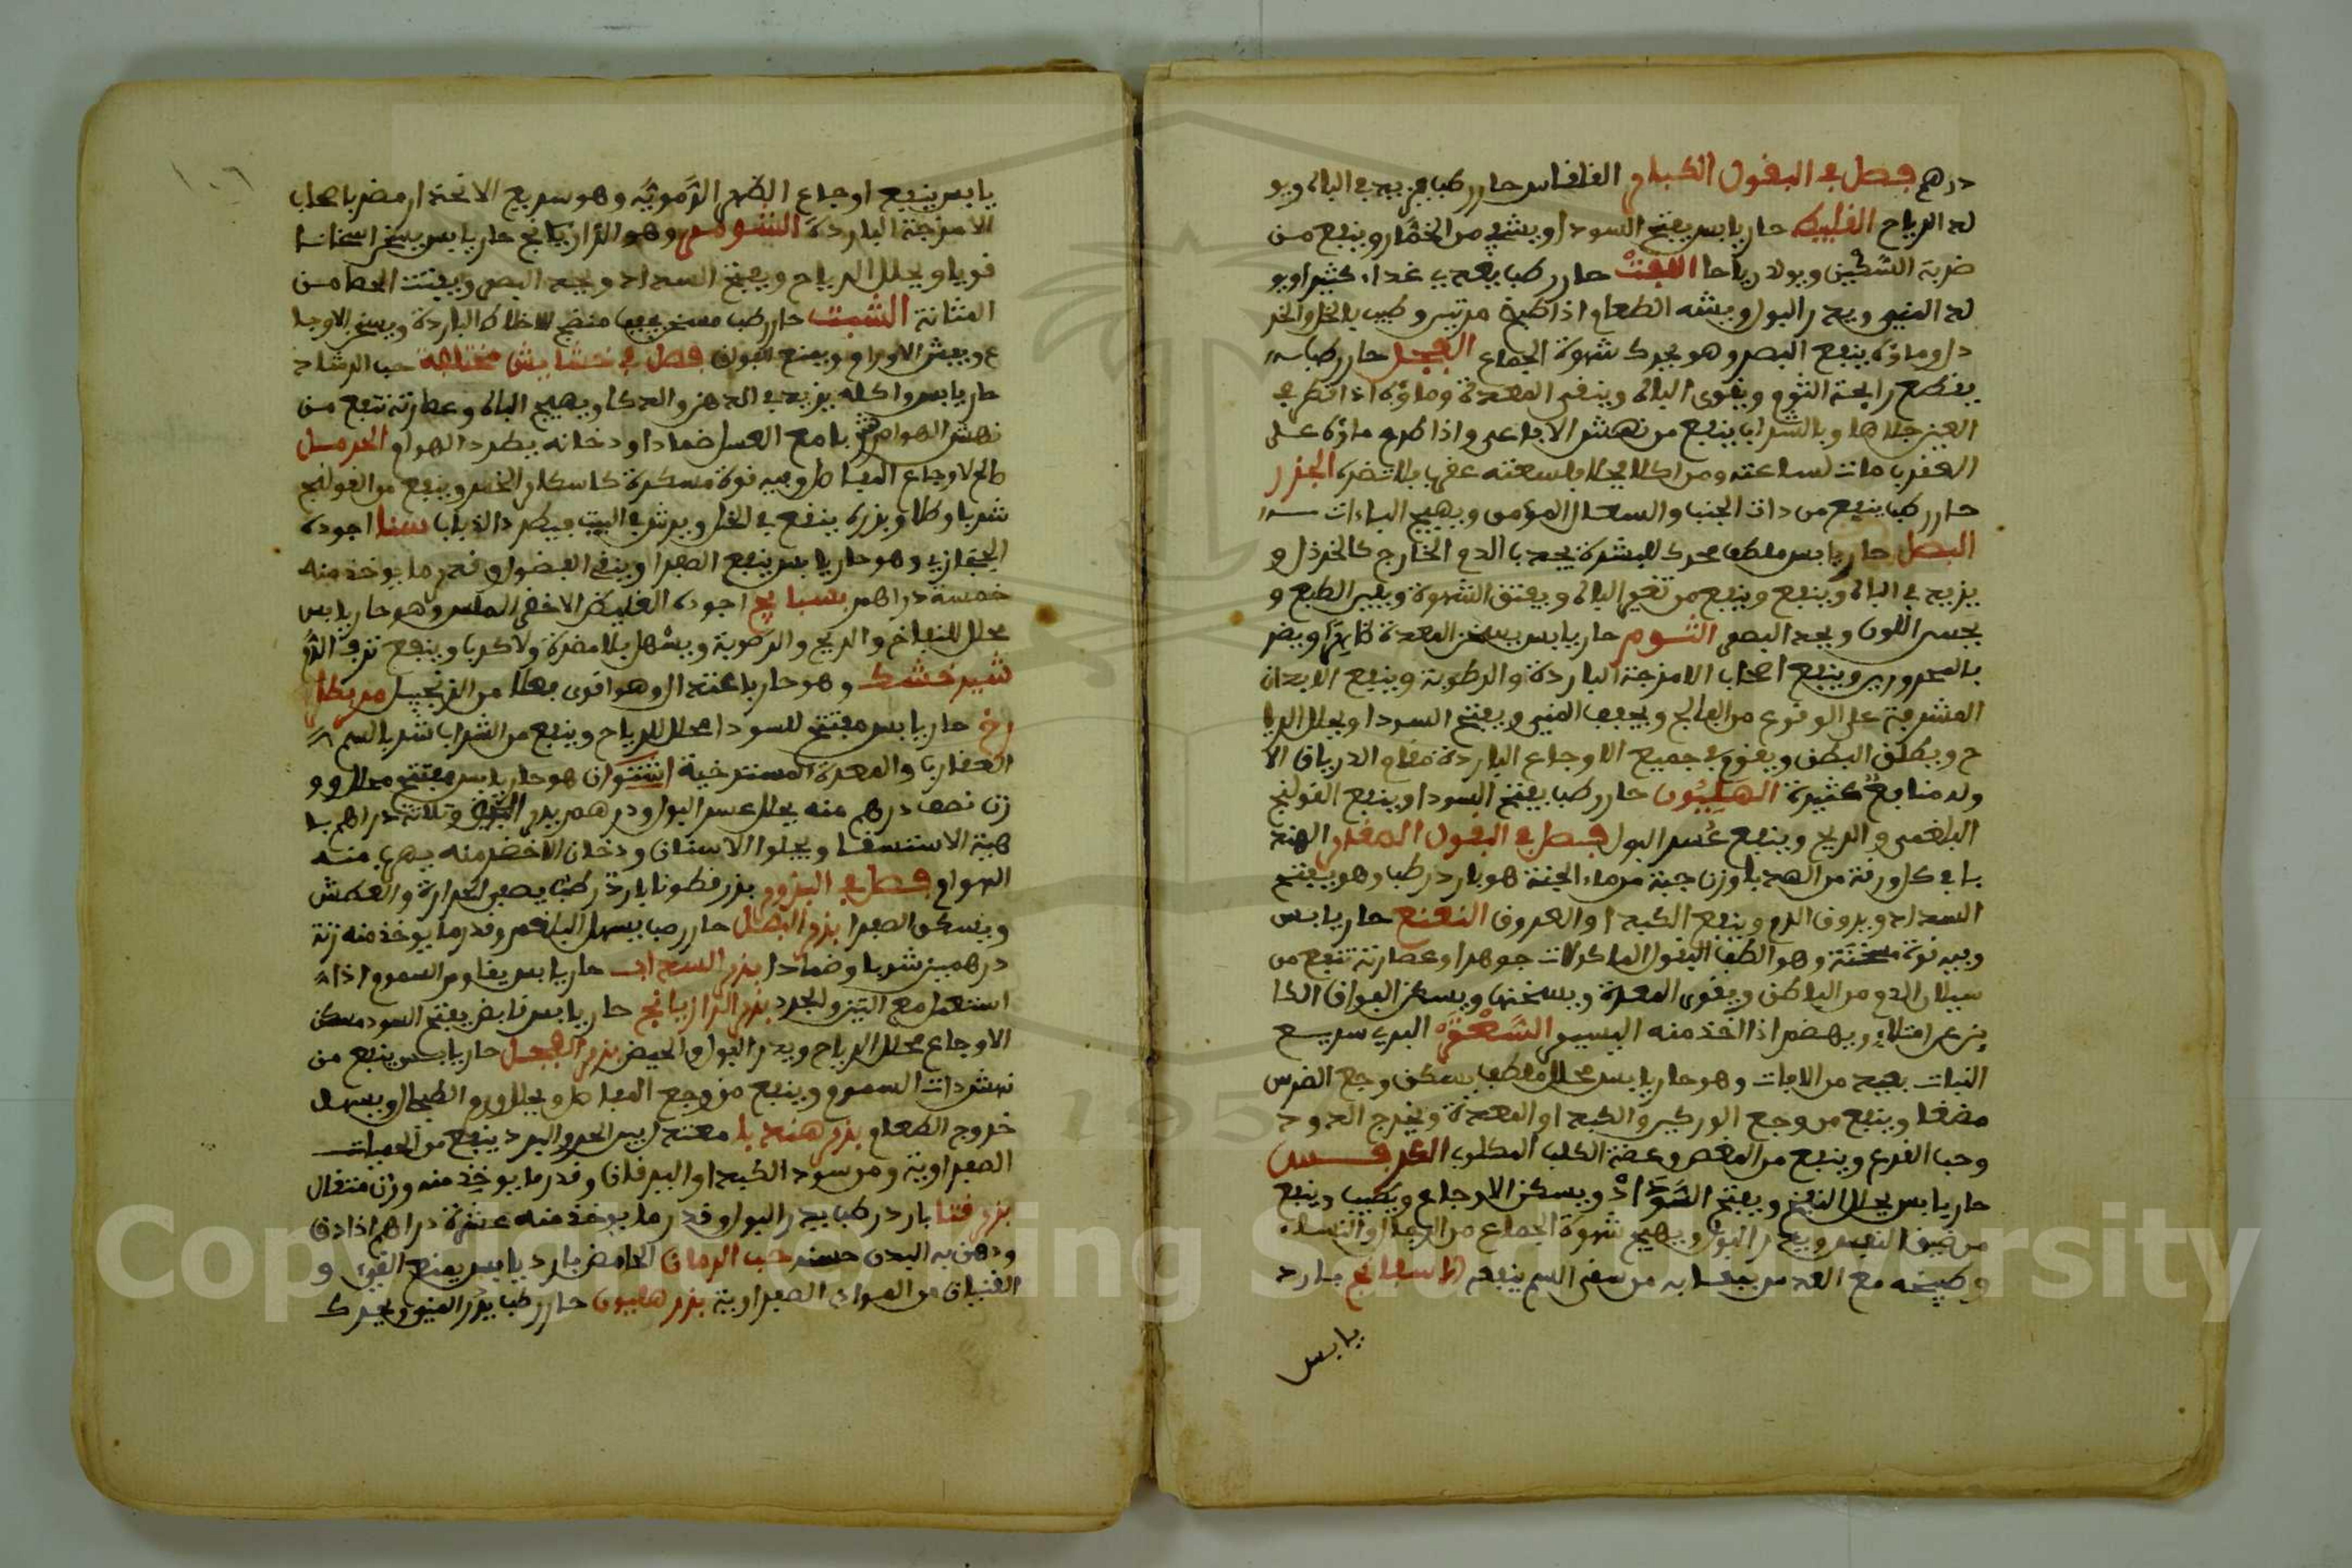 درهم فصل في البقول الكبار القلقاس حار رطب يزيد في الباه ويو
لد الرياح القنبيط حار يابس يفتح السودا ويشفي من الخمار وينفع من
ضربة السكين ويولد رياحا اللفت حار رطب يغدي غداء كثيرا ويو
لد المني ويدر البول ويشه الطعام اذا طبخ مرتين وطيب بالخل والخر
دل وماؤه ينفع البصر وهو يحرك شهوة الجماع الفجل حار رطب
يقطع رايحة الثوم ويقوى الباه وينقي المعدة وماؤه اذا قطر في
العين جلاها وبالشراب ينفع من نهش الافاعي واذا طرح ماؤه على
العقرب مات لساعته ومن اكله فلسعته عقرب لم تضره الجزر
حار رطب ينفع من ذات الجنب والسعال المزمن ويهيج الباءات
البصل حار يابس ملطف محرك للبشرة يجدب الدم الخارج كالخردل و
يزيد في الباه وينفع وينفع من تغير المياه ويفتق الشهوة ويلين الطبع و
يحسن اللون ويحد البصر الثوم حار يابس يسخن المعدة ويضر
بالمحرورين وينفع اصحاب الامزجة الباردة والرطوبة وينفع الابدان
المشرفة على الوقوع من الفالج ويجفف المني ويفتح السودا ويحلل الريا
ح ويطلق البطن ويقوم في جميع الاوجاع الباردة مقام الدرياق الا
وله منافع كثيرة الهليون حار رطب يفتح السودا وينفع القولنج
البلغمي والريح وينفع عسر البول فصل في البقول الصغار الهند
با في كل ورقة من الهندبا وزن حبة من ماء الجنة هو بارد رطب وهو يفتح
السداد ويروق الدم وينفع الكبد والعروق النعنع حار يابس
وفيه قوة مسخنة وهو الطف البقول الماكولات جوهرا وعصارته تنفع من
سيلان الدم من الباطن ويقوى المعدة ويسخنها ويسكن الفواق الكا
ين عن امتلاء ويهضم اذا اخذ منه اليسير السعتر البري سريع
النبات بعيد من الافات وهو حار يابس محلل ملطف يسكن وجع الضرس
مضغا وينفع من وجع الوركين والكبد والمعدة ويخرج الدود
وحب القرع وينفع من المغص وعضة الكلب المكلوب الكرفس
حار يابس يحلل النفخ ويفتح السوداد ويسكن الاوجاع ويطيب وينفع
من ضيق النفس ويدر البول ويهيج شهوة الجماع من الرجال والنساء
وطبيخه مع العدس يتقيا به من سقي السم ينفعه الاسفاناخ بارد
يابس
يابس ينفع اوجاع الظهر الدموية وهو سريع الانحدار مضر باصحاب
الامزجة الباردة الشومر وهو الرازيانج حار يابس يسخن اسخانا
قويا ويحلل الرياح ويفتح السداد ويحد البصر ويفتت الحصا من
المثانة الشبت حار رطب مسخن مجفف منضج للاخلاط الباردة ويسكن الاوجا
ع ويفش الاورام ويمنع الفواق فصل في حشايش مختلفة حب الرشاد
حار يابس واكله يزيد في الدهن والدكا ويهيج الباه وعصارته تنفع من
نهش الهوام شربا مع العسل ضمادا ودخانه يطرد الهوام الحرمل
صالح لاوجاع المفاصل وفيه قوة مسكرة كاسكار الخمر وينفع من القولنج
شربا وطلا وبزره ينفع في الخل ويرش في البيت فيطرد الذباب سنا اجوده
الحجازي وهو حار يابس ينفع الصفرا وينقي الفضول وقدر ما يوخذ منه
خمسة دراهم بسبايج اجوده الغليظ الاخضر الملس وهو حار يابس
محلل للنفاخ والريح والرطوبة ويسهل بلا مضرة ولا كرب وينفع نزف الدم
شير خشك وهو حار باعتدال وهو اقوى فعلا من الزنجبيل
حار يابس مفتح للسودا محلل للرياح وينفع من الشراب شربا السم
العقارب والمعدة المسترخية هو حار يابس مفتح محلل و و
زن نصف درهم منه يحلل عسر البول ودرهم وثلاثة دراهم بـ
هيئة الاستسقا ويجلوا الاسنان ودخان الاخضر منه يهرب منه
الهوام فصل في البزور بزر قطونا بارد رطب يطفي الحرارة والعطش
ويسكن الصفرا بزر البصل حار رطب يسهل البلغم وقدر ما يوخذ منه زنة
درهمين شربا وضمادا بزر السداب حار يابس يقاوم السموم اذا
استعمل مع التين والجوز بزر الرازيانج حار يابس قابض يفتح السود مسكن
الاوجاع محلل الرياح ويدر البول والحيض بزر الفجل حار يابس ينفع من
نهش ذات السموم وينفع من وجع المفاصل ويحلل ورم الطحال ويسهل
خروج الطعام بزر هندبا معتدل بين الحر والبرد ينفع من الحميات
الصفراوية ومن سود الكبد واليرقان وقدر ما يوخذ منه وزن مثقال
بزر قثا بارد رطب يدر البول وقدر ما يوخذ منه عشرة دراهم اذا دق
ودهن به البدن حسنه حب الرمان الحامض بارد يابس يمنع القيء و
الغثيان من المواد الصفراوية بزر هليون حار رطب يدر المني ويحرك
Copyright © King Saud University
1957